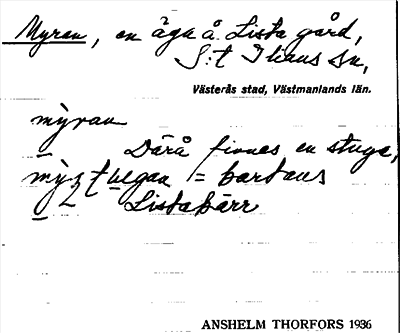 Myran, en äga å Lista gård,
S:t Ilians sn,
Västerås stad, Västmanlands län.
mỳran
Därå finnes en stuga,
=
Listakärr
ANSHELM THORFORS 1936